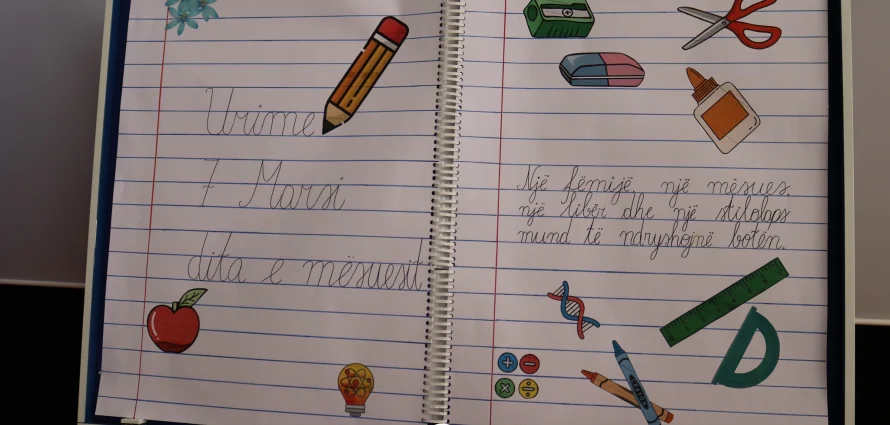 Urime
7 Marsi
dita e mësuesit
Një fëmijë, një mësues,
një libër dhe një stilolaps
mund të ndryshojnë botën.